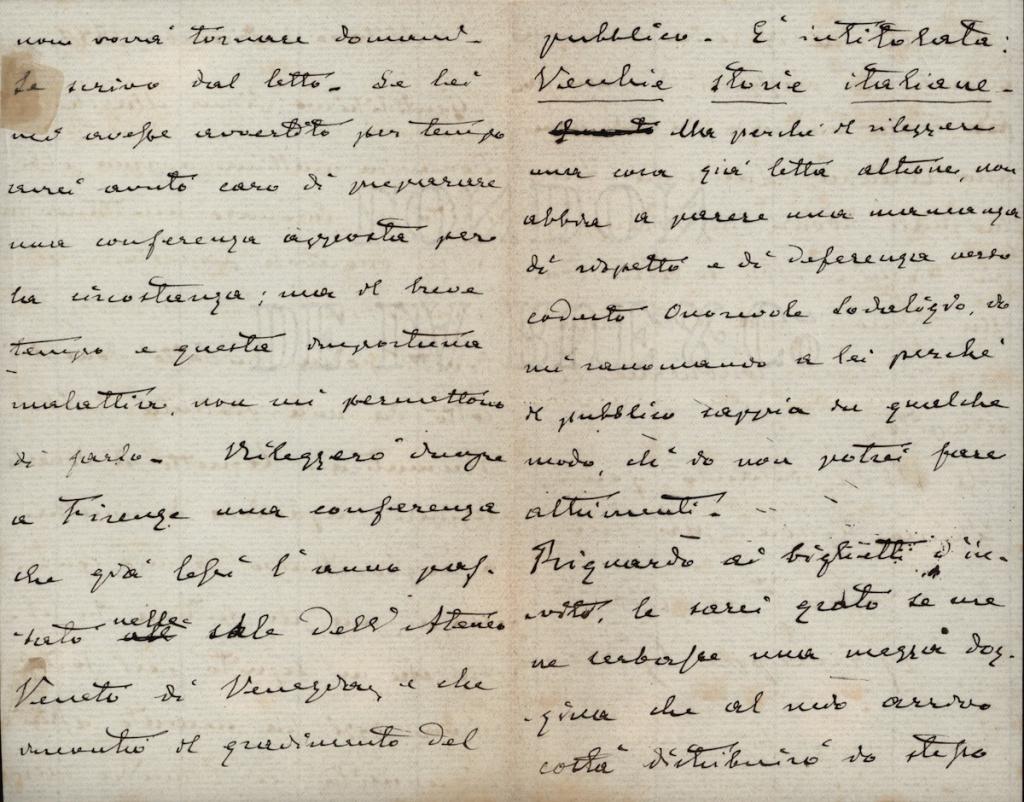 non vorrà tornare domani.
Le scrivo dal letto. Se lei
mi avesse avvertito per tempo
avrei avuto caro di preparare
una conferenza apposta per
la circostanza; ma il breve
tempo e questa importuna
malattia, non mi permettono
di farlo. Rileggerò dunque
a Firenze una conferenza
che già lessi l'anno pas-
sato nelle sale dell'Ateneo
Veneto di Venezia, e che
incontrò il gradimento del
pubblico. È intitolata:
Vecchie storie italiane.
Ma perché il rileggere
una cosa già letta altrove, non
abbia a parere una mancanza
di rispetto e di deferenza verso
codesto Onorevole Sodalizio, io
mi raccomando a lei perché
il pubblico sappia in qualche
modo, ch'io non potrei fare
altrimenti.
Riguardo ai biglietti d'in-
vito, le sarei grato se me
ne serbasse una mezza doz-
zina che al mio arrivo
costà distribuirò io stesso